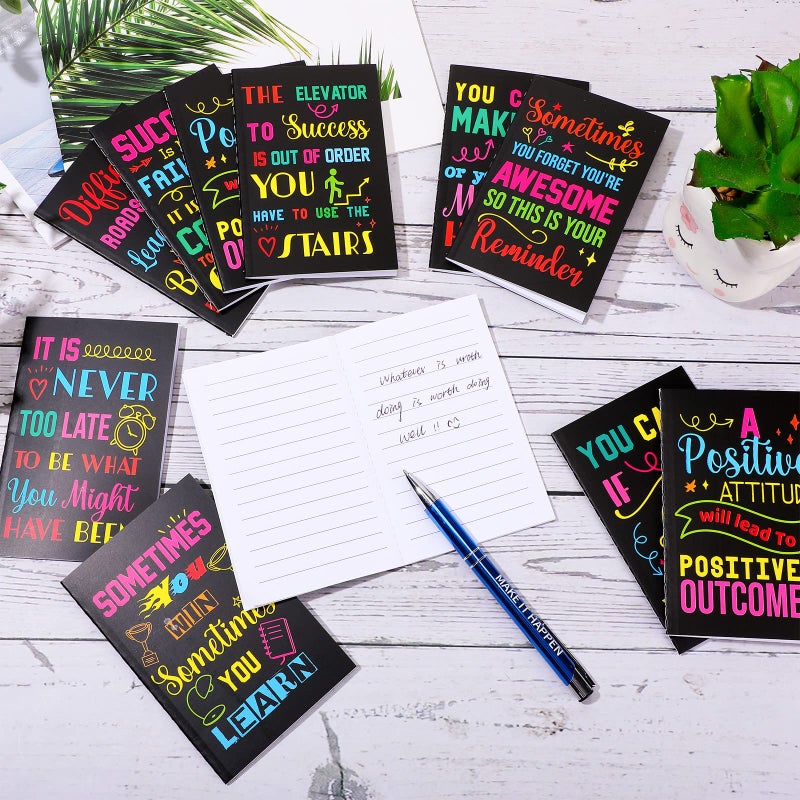 ROADS
SUCC
IS
FAIL
IT IS
CO
TO
Po
POS
OU
THE ELEVATOR
TO Success
IS OUT OF ORDER
YOU
HAVE TO USE THE
STAIRS
YOU C
MAK
or yo
M
Sometimes
YOU FORGET YOU'RE
AWESOME
SO THIS IS YOUR
Reminder
IT IS
NEVER
TOO LATE
TO BE WHAT
You Might
HAVE BEEN
Whatever is wroth
doing is worth doing
well !!
SOMETIMES
YOU
WIN
Sometimes
YOU
LEARN
MAKE IT HAPPEN
YOU CA
IF
A
Positive
ATTITUD
will lead to
POSITIVE
OUTCOME